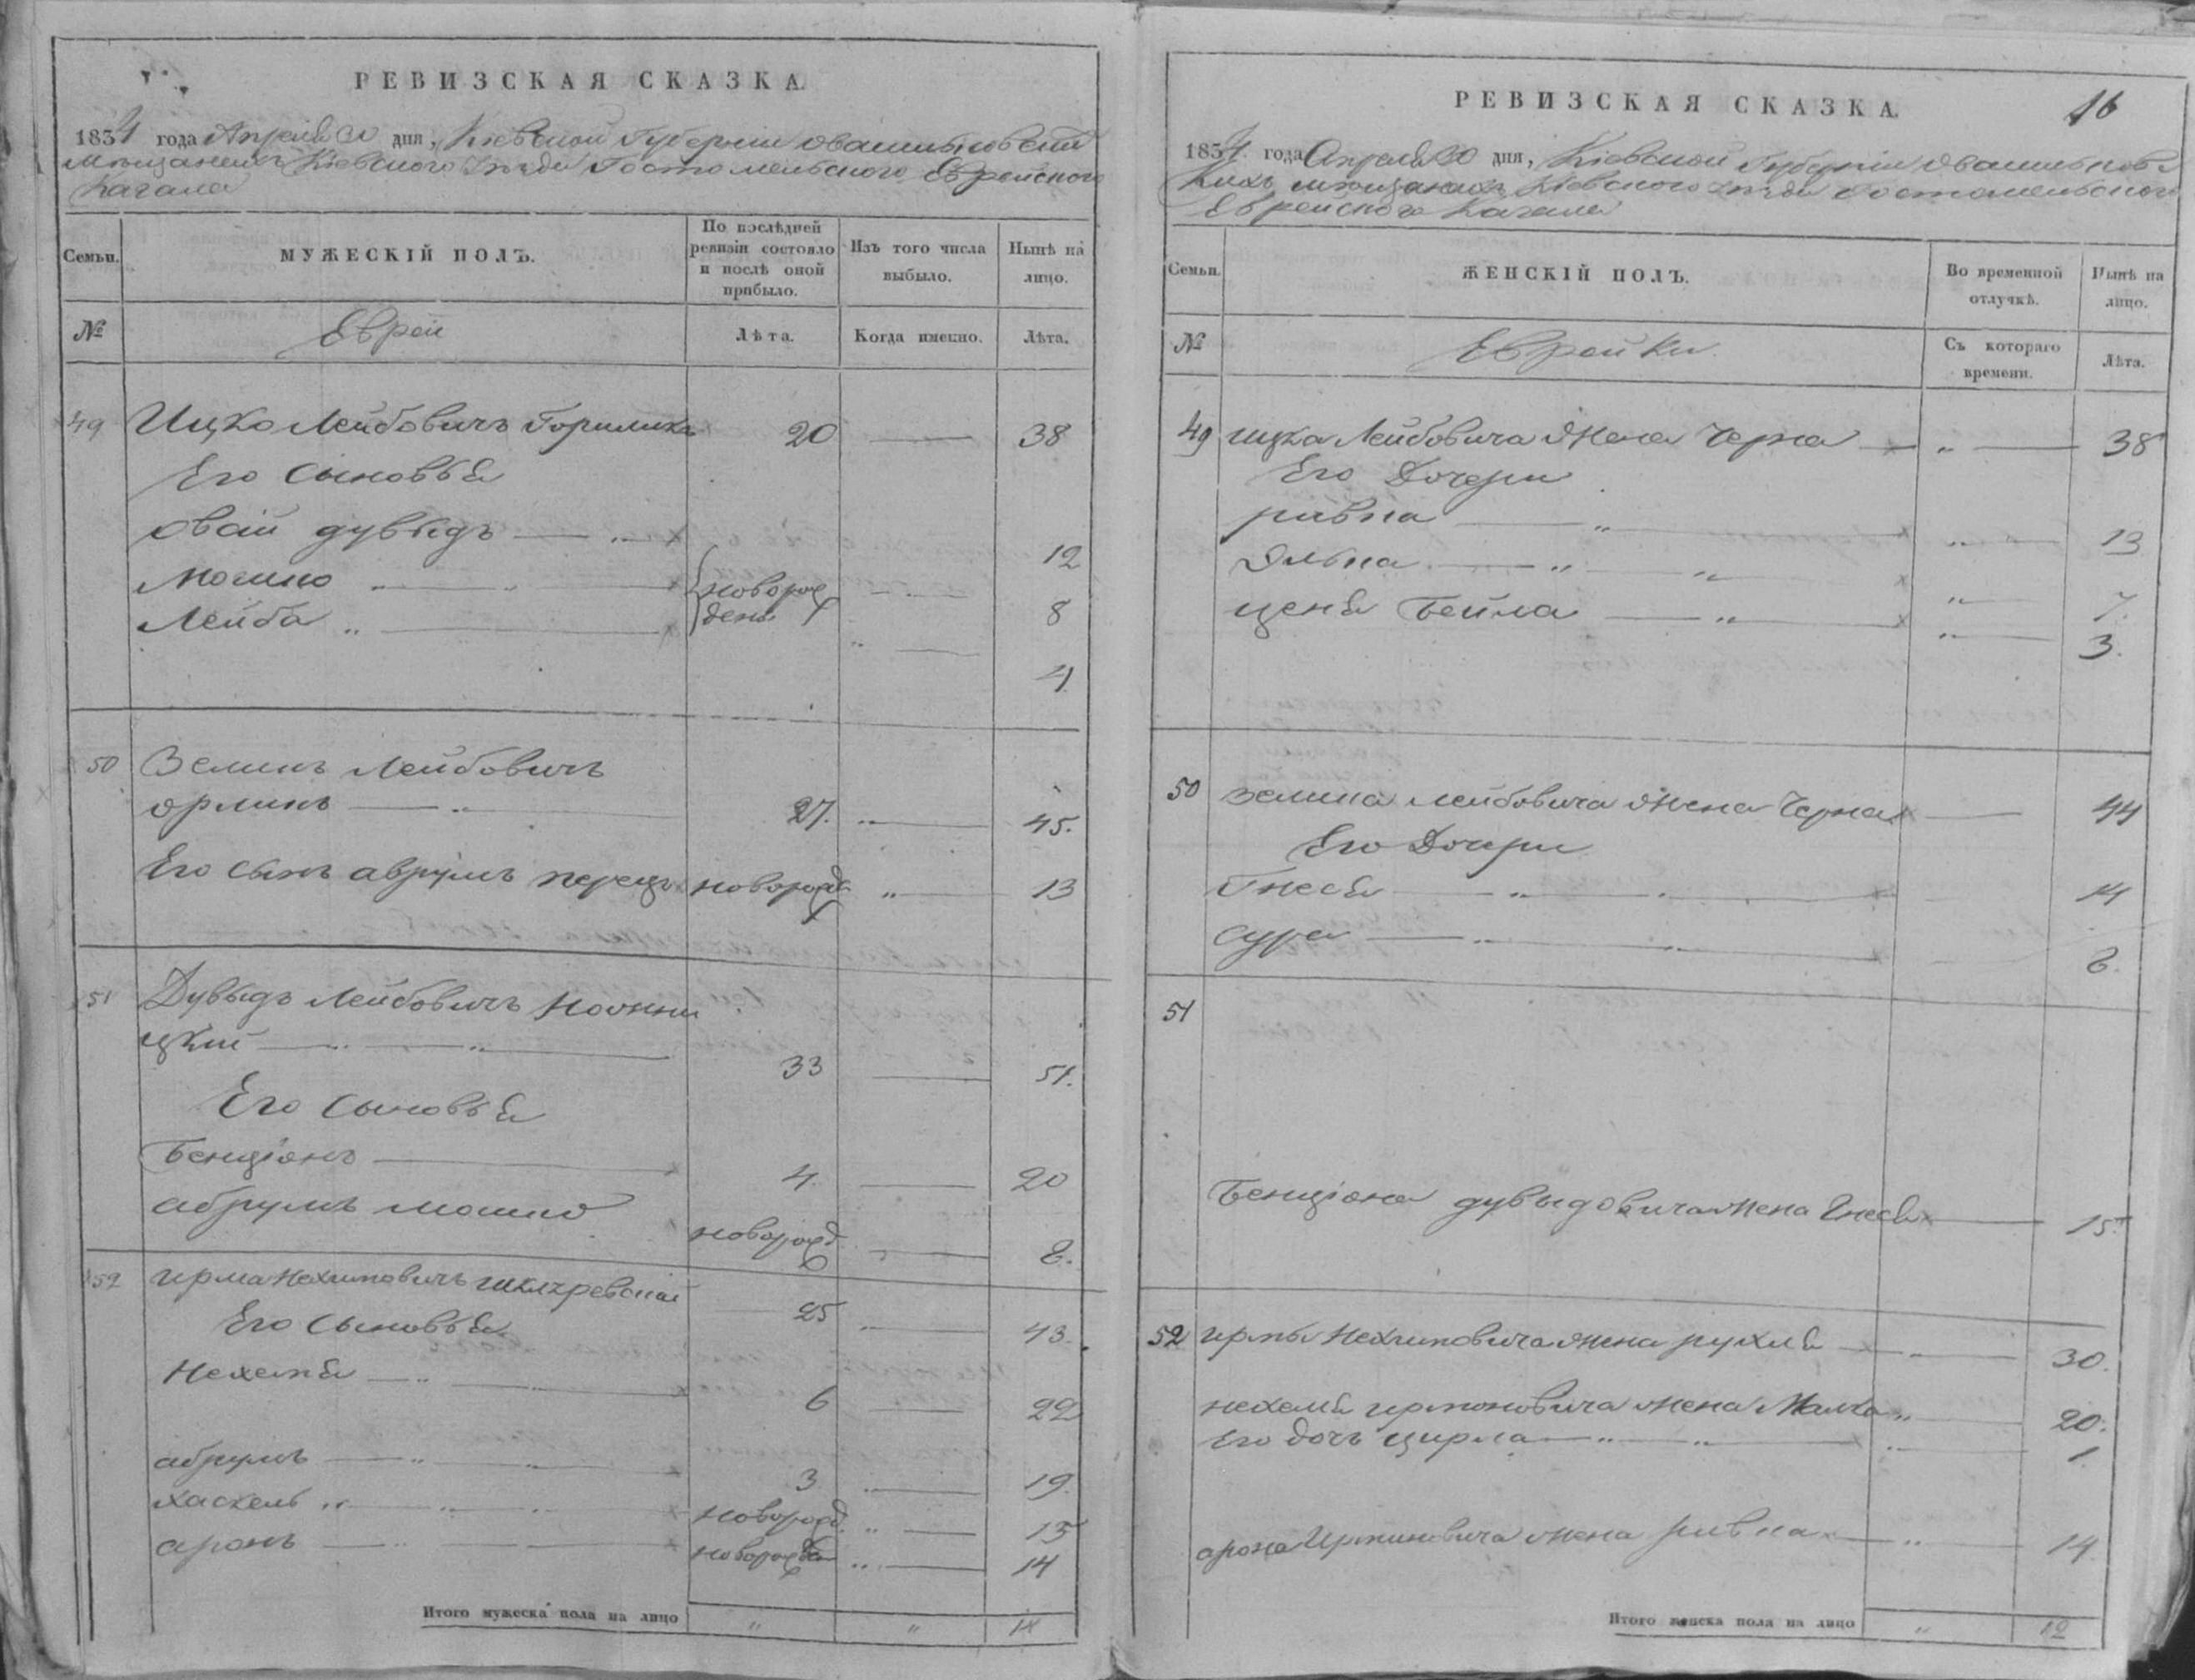 РЕВИЗСКАЯ СКАЗКА.
1834 года Апреля 30 дня, Кіевской Губерніи о
мѣщанехъ Кіевского уѣзда Гостомельского Еврейского
Кагала
Семьи.
МУЖЕСКІЙ ПОЛЪ.
По послѣдней ревизіи состояло и послѣ оной прибыло.
Изъ того числа выбыло.
Нынѣ на лицо.
№
Евреи
Лѣта.
Когда именно.
Лѣта.
49 Ицко Лейбовичъ 20 38
Его Сыновья
овсій дувыдъ 12
Мошко новорожденн 8
Лейба 4
50 Зелинъ Лейбовичъ
орлинъ 27. 45.
Его сынъ аврумъ перецъ новорожд 13
51 Дувыдъ Лейбовичъ
цкій 33 51.
Его Сыновья
Бенціонъ 4. 20
абрумъ мошко новорожд 8.
52 ирма Нехимовичъ 25 43.
Его Сыновья
Нехемя 6 22
абрумъ 3 19.
хаскель новорожд. 15
аронъ новорожд 14
Итого мужеска пола на лицо " " 14
РЕВИЗСКАЯ СКАЗКА.
16
1834 года Апреля 30 дня, Кіевской Губерніи о
мѣщанахъ Кіевского уѣзда Гостомельского
Еврейского Кагала
Семьи.
ЖЕНСКІЙ ПОЛЪ.
Во временной отлучкѣ.
Нынѣ на лицо.
№
Еврейки
Съ котораго времени.
Лѣта.
49 ицка Лейбовича Жена Черна " 38
Его Дочери
ривка " 13
Элька " 7.
ценя Бейла " 3.
50 зелина лейбовича Жена Черна 44
Его Дочери
Гнеся 14
сура 8.
51
Бенціона дувыдовича жена Гнеся 15.
52 ирмы Нехимовича жена рухля 30.
нехеми ирмоновича жена Малка 20.
Его дочь цирла 1
арона Ирмиовича жена ривка 14
Итого женска пола на лицо " 12